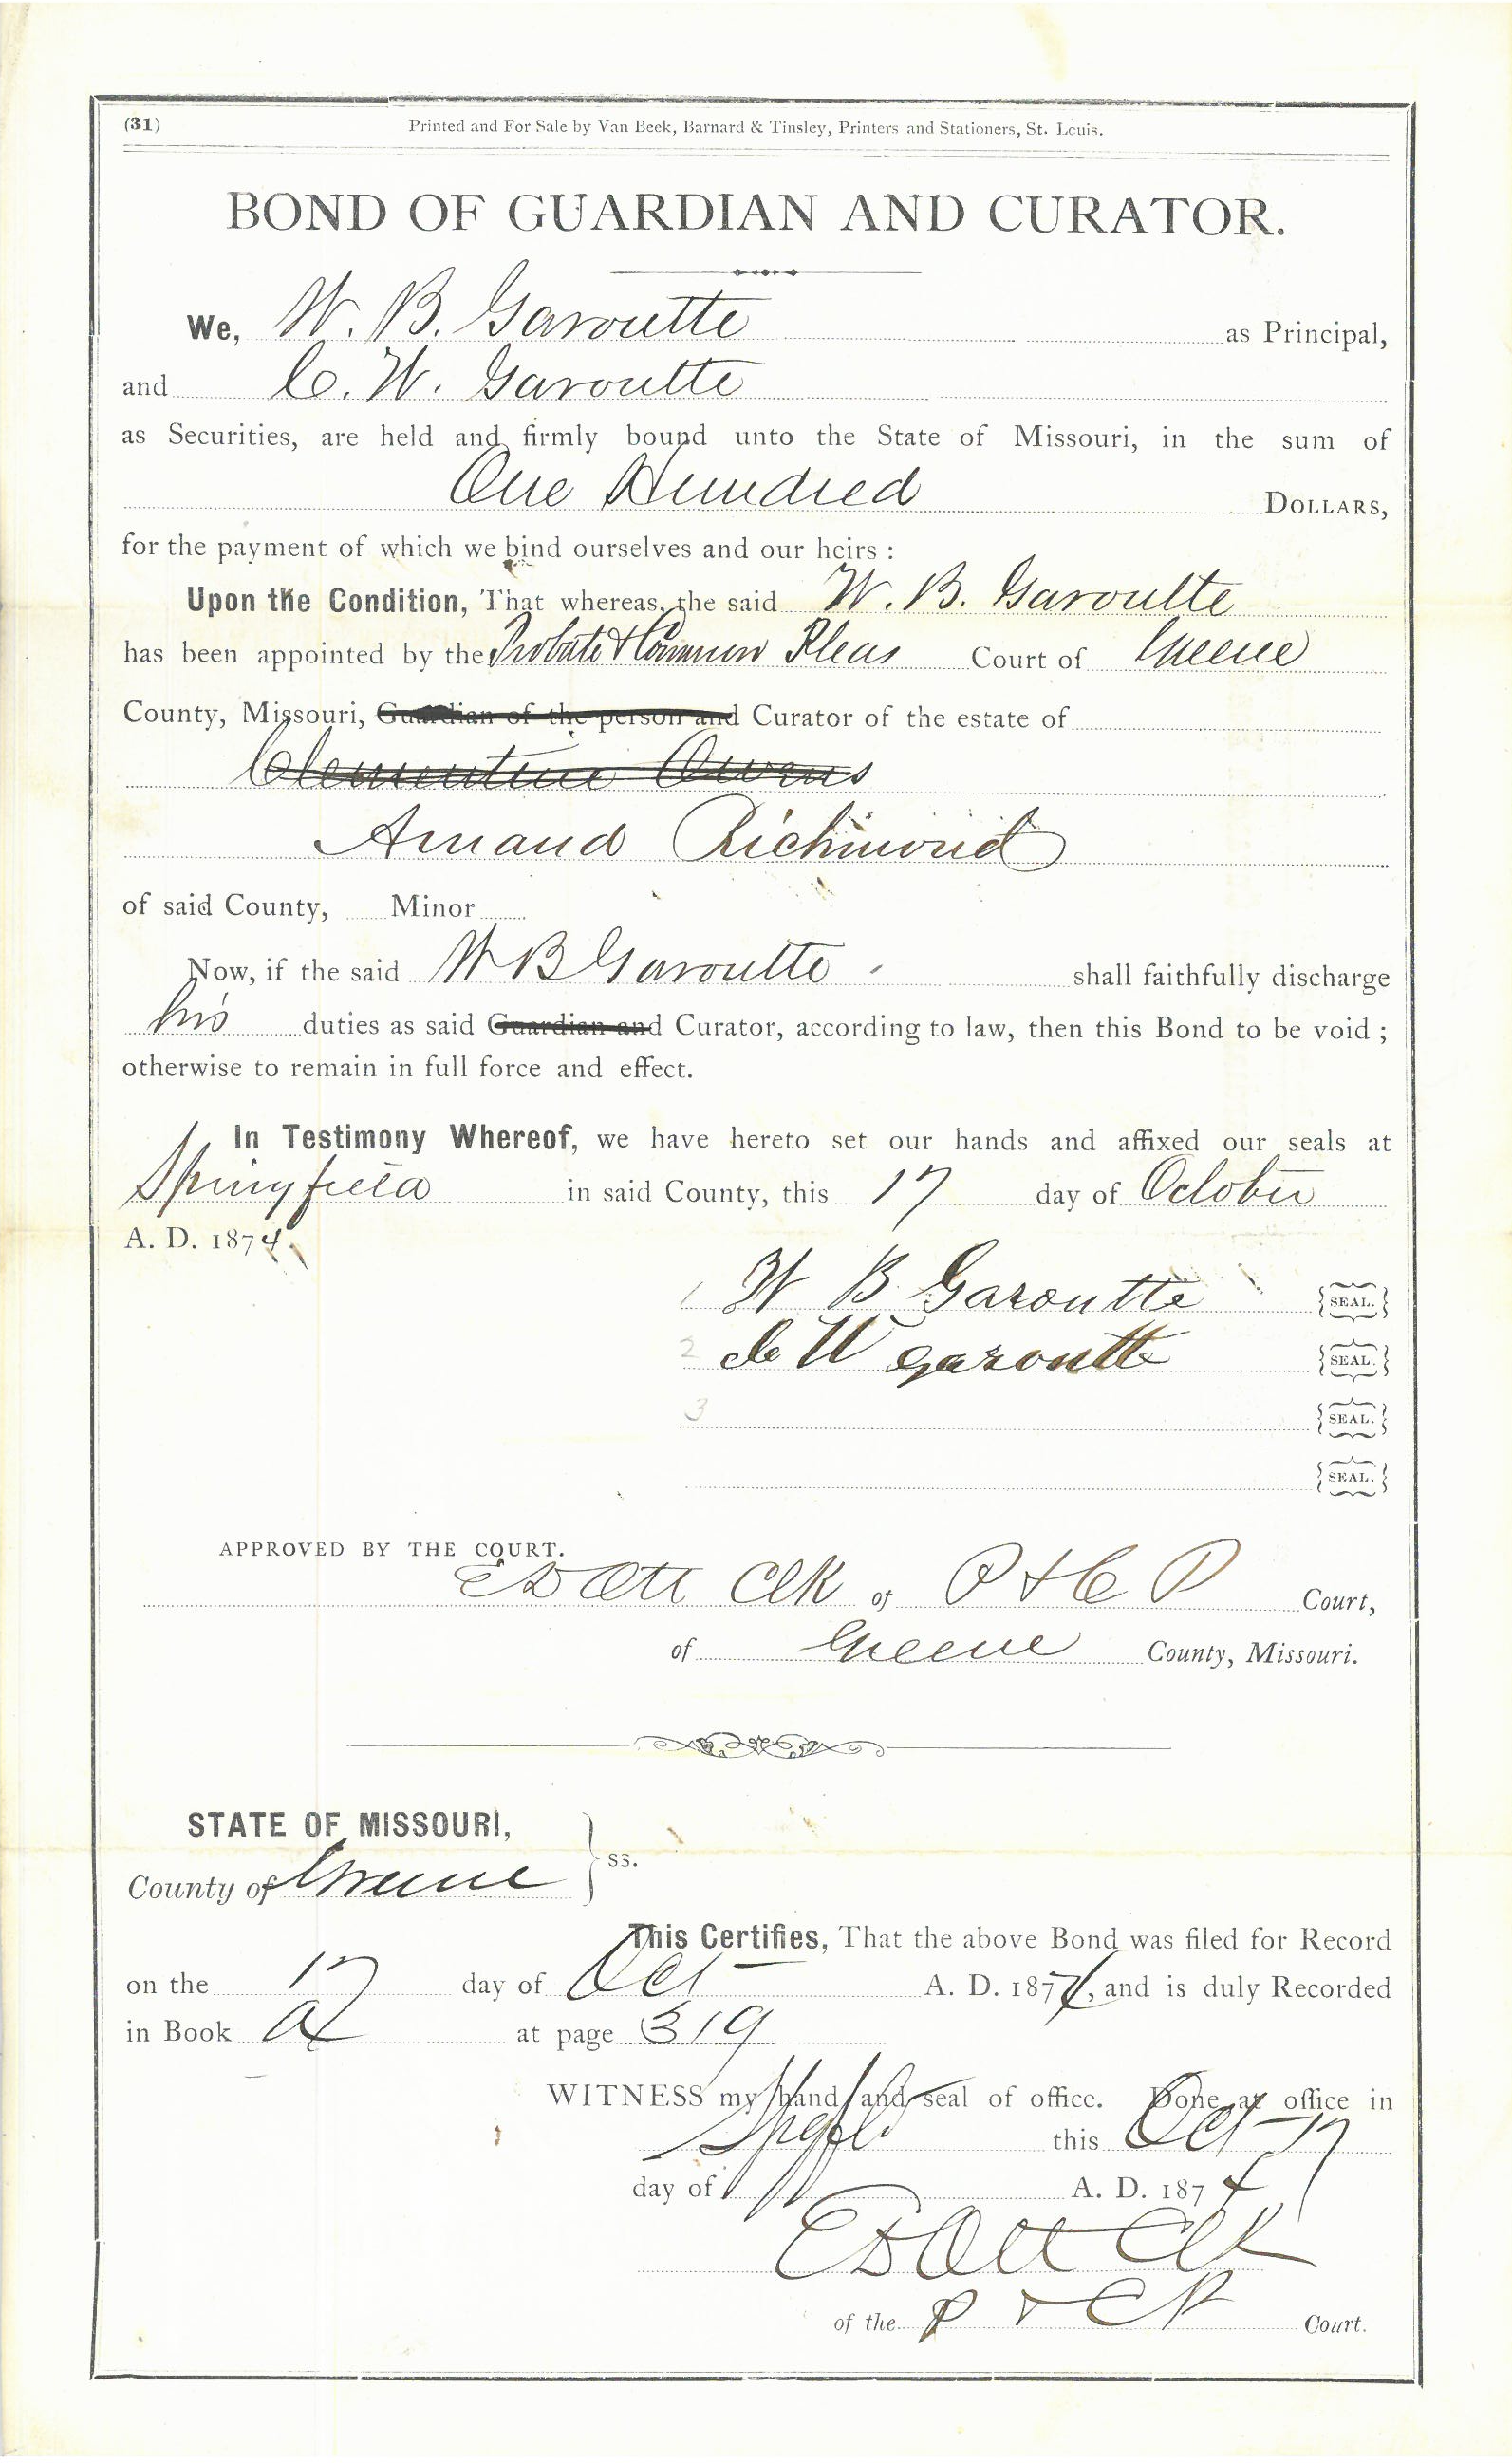 (31)
Printed and For Sale by Van Beek, Barnard & Tinsley, Printers and Stationers, St. Louis.
BOND OF GUARDIAN AND CURATOR.
We, W. B. Garoutte as Principal,
and C. W. Garoutte
as Securities, are held and firmly bound unto the State of Missouri, in the sum of
One Hundred DOLLARS,
for the payment of which we bind ourselves and our heirs :
Upon the Condition, That whereas, the said W. B. Garoutte
has been appointed by the Probate & Common Pleas Court of Greene
County, Missouri, Guardian of the person and Curator of the estate of
Clementine Owens
Amand Richmond
of said County, Minor
Now, if the said W B Garoutte shall faithfully discharge
his duties as said Guardian and Curator, according to law, then this Bond to be void ;
otherwise to remain in full force and effect.
In Testimony Whereof, we have hereto set our hands and affixed our seals at
Springfield in said County, this 17 day of October
A. D. 1874.
1 W B Garoutte SEAL.
2 C W Garoutte SEAL.
3 SEAL.
SEAL.
APPROVED BY THE COURT.
E D Ott Clk of P & C P Court,
of Greene County, Missouri.
STATE OF MISSOURI,
ss.
County of Greene
This Certifies, That the above Bond was filed for Record
on the 17 day of Oct A. D. 1874, and is duly Recorded
in Book A at page 319
WITNESS my hand and seal of office. Done at office in
Spgfld this Oct 17
day of A. D. 1874
E D Ott Clk
of the P & C P Court.